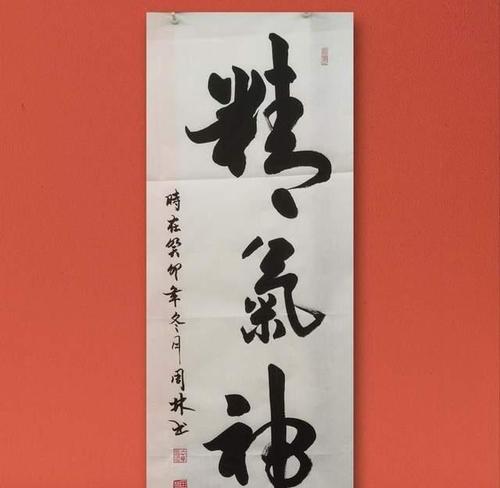 精氣神
時在癸卯年冬月周林书